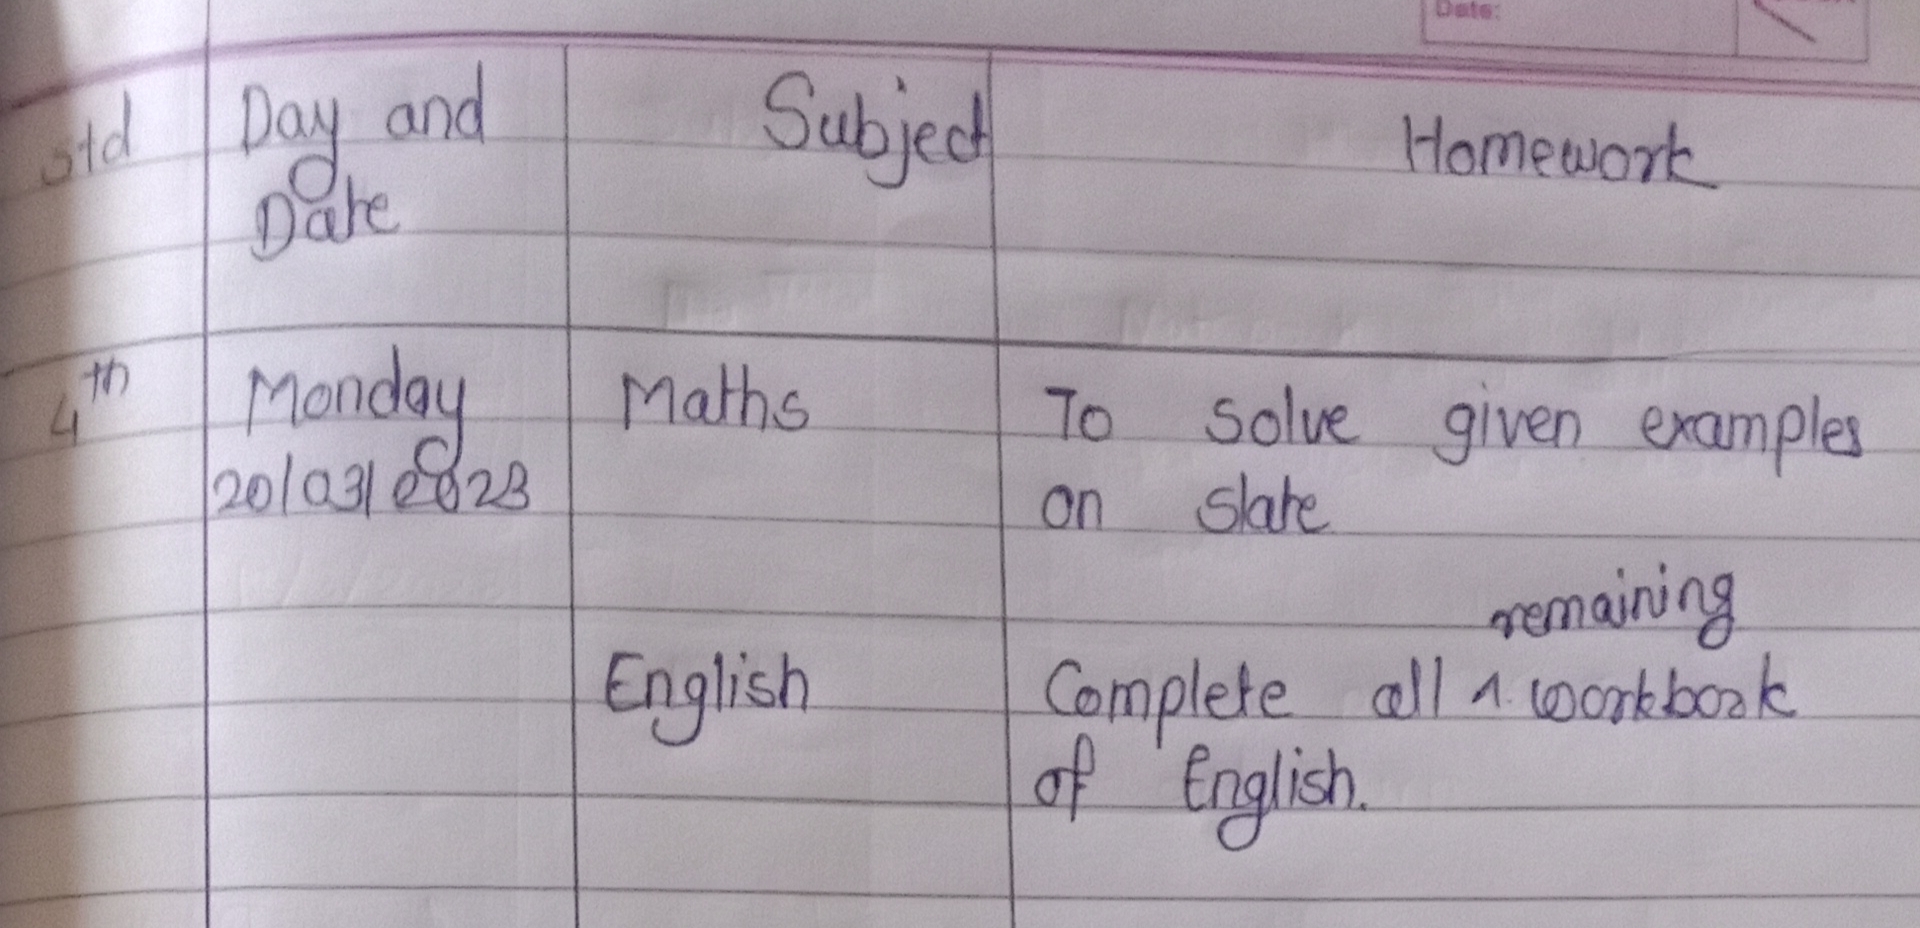 Date:
std Day and Subject Homework
Date
4th Monday Maths To solve given examples
20/03/2023 on slate
remaining
English Complete all ^ workbook
of English.